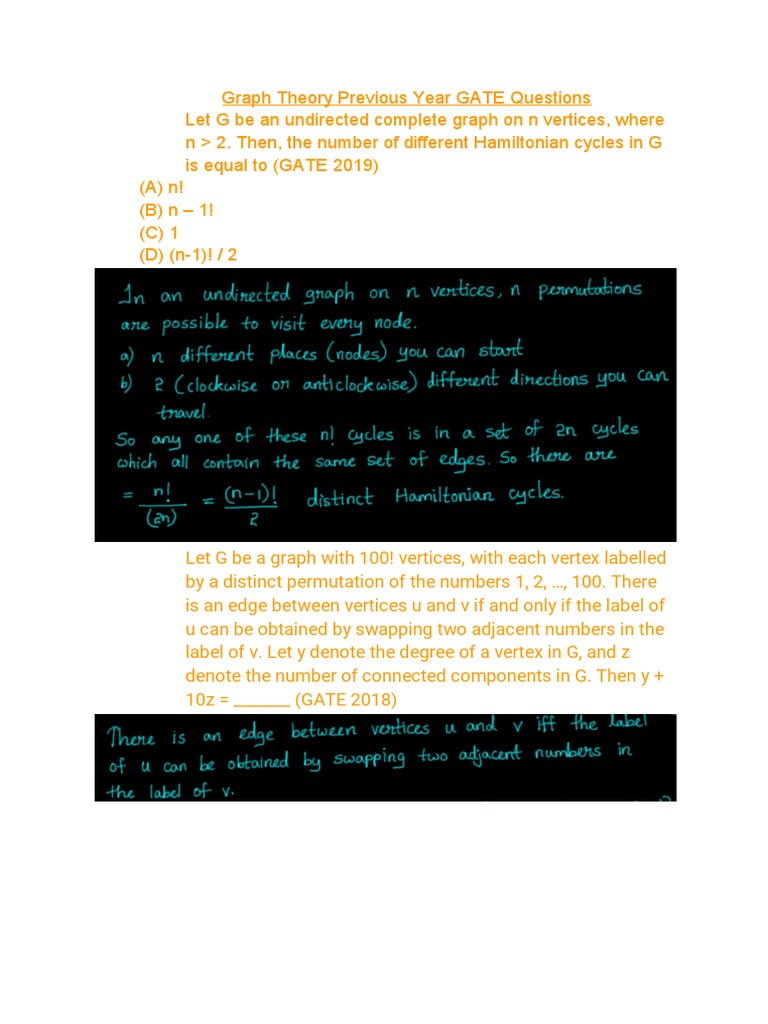 Graph Theory Previous Year GATE Questions
Let G be an undirected complete graph on n vertices, where
n > 2. Then, the number of different Hamiltonian cycles in G
is equal to (GATE 2019)
(A) n!
(B) n – 1!
(C) 1
(D) (n-1)! / 2
In an undirected graph on n vertices, n permutations
are possible to visit every node.
a) n different places (nodes) you can start
b) 2 (clockwise or anticlockwise) different directions you can
travel.
So any one of these n! cycles is in a set of 2n cycles
which all contain the same set of edges. So there are
= n!/(2n) = (n-1)!/2 distinct Hamiltonian cycles.
Let G be a graph with 100! vertices, with each vertex labelled
by a distinct permutation of the numbers 1, 2, …, 100. There
is an edge between vertices u and v if and only if the label of
u can be obtained by swapping two adjacent numbers in the
label of v. Let y denote the degree of a vertex in G, and z
denote the number of connected components in G. Then y +
10z = ______ (GATE 2018)
There is an edge between vertices u and v iff the label
of u can be obtained by swapping two adjacent numbers in
the label of v.